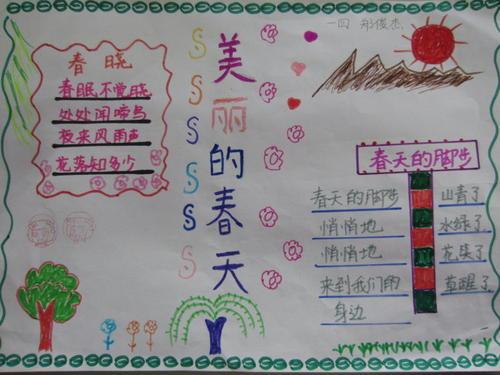 春晓
春眠,不觉晓,
处处闻啼鸟
夜来风雨声
花落知多少
美丽的春天
一四
春天的脚步
春天的脚步
悄悄地
悄悄地
来到我们的
身边
山青了
水绿了
花笑了
草醒了